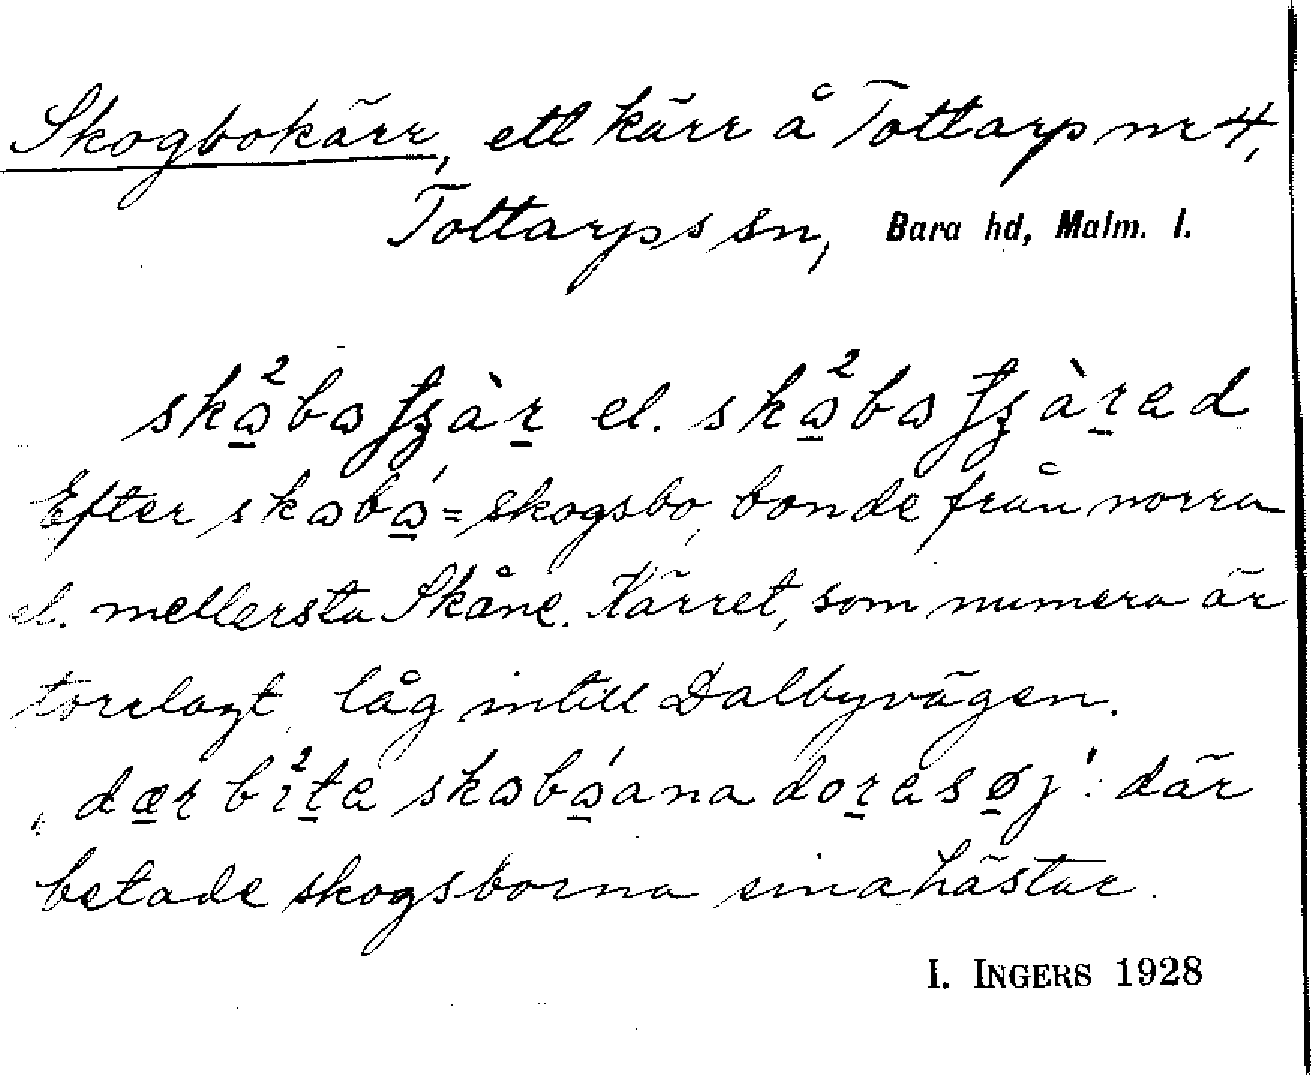 Skogbokärr, ett kärr å Tottarp nr 4,
Tottarps sn, Bara hd, Malm. l.
el.
Efter = skogsbo, bonde från norra
el. mellersta Skåne. Kärret, som numera är
torrlagt, låg intill Dalbyvägen.
där
betade skogsborna sina hästar.
I. INGERS 1928